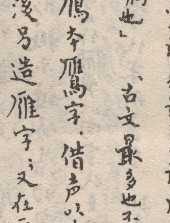 也」、古文最多也不
鴈本鴈字、借声以
後另造雁字、又在